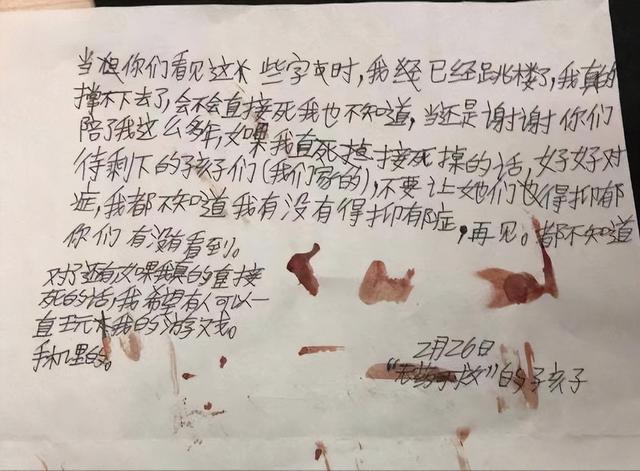 当你们看见这些字时，我经已经跳楼了，我真的
撑不下去了，会不会直接死我也不知道，当还是谢谢你们
陪了我这么多年，如果我直死接死掉的话，好好对
待剩下的孩子们（我们家的），不要让她们也得抑郁
症，我都不知道我有没有得抑郁症，再见。都不知道
你们有没有看到。
对了还有如果我真的直接
死的话，我希望有人可以一
直玩我的游戏。
手机里的。
2月26日
“无药可救”的孩子